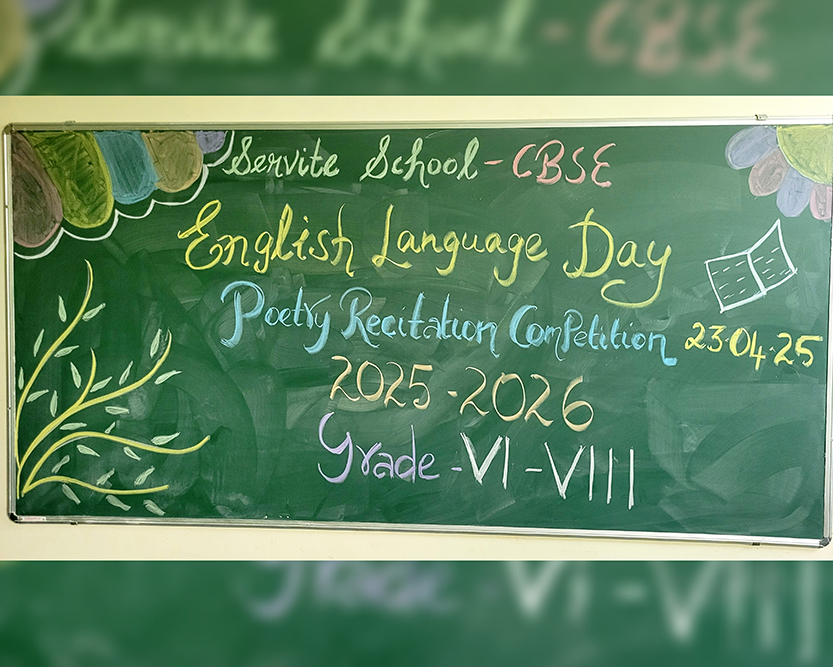 Servite School - CBSE
English Language Day
Poetry Recitation Competition 23.04.25
2025 - 2026
Grade - VI - VIII